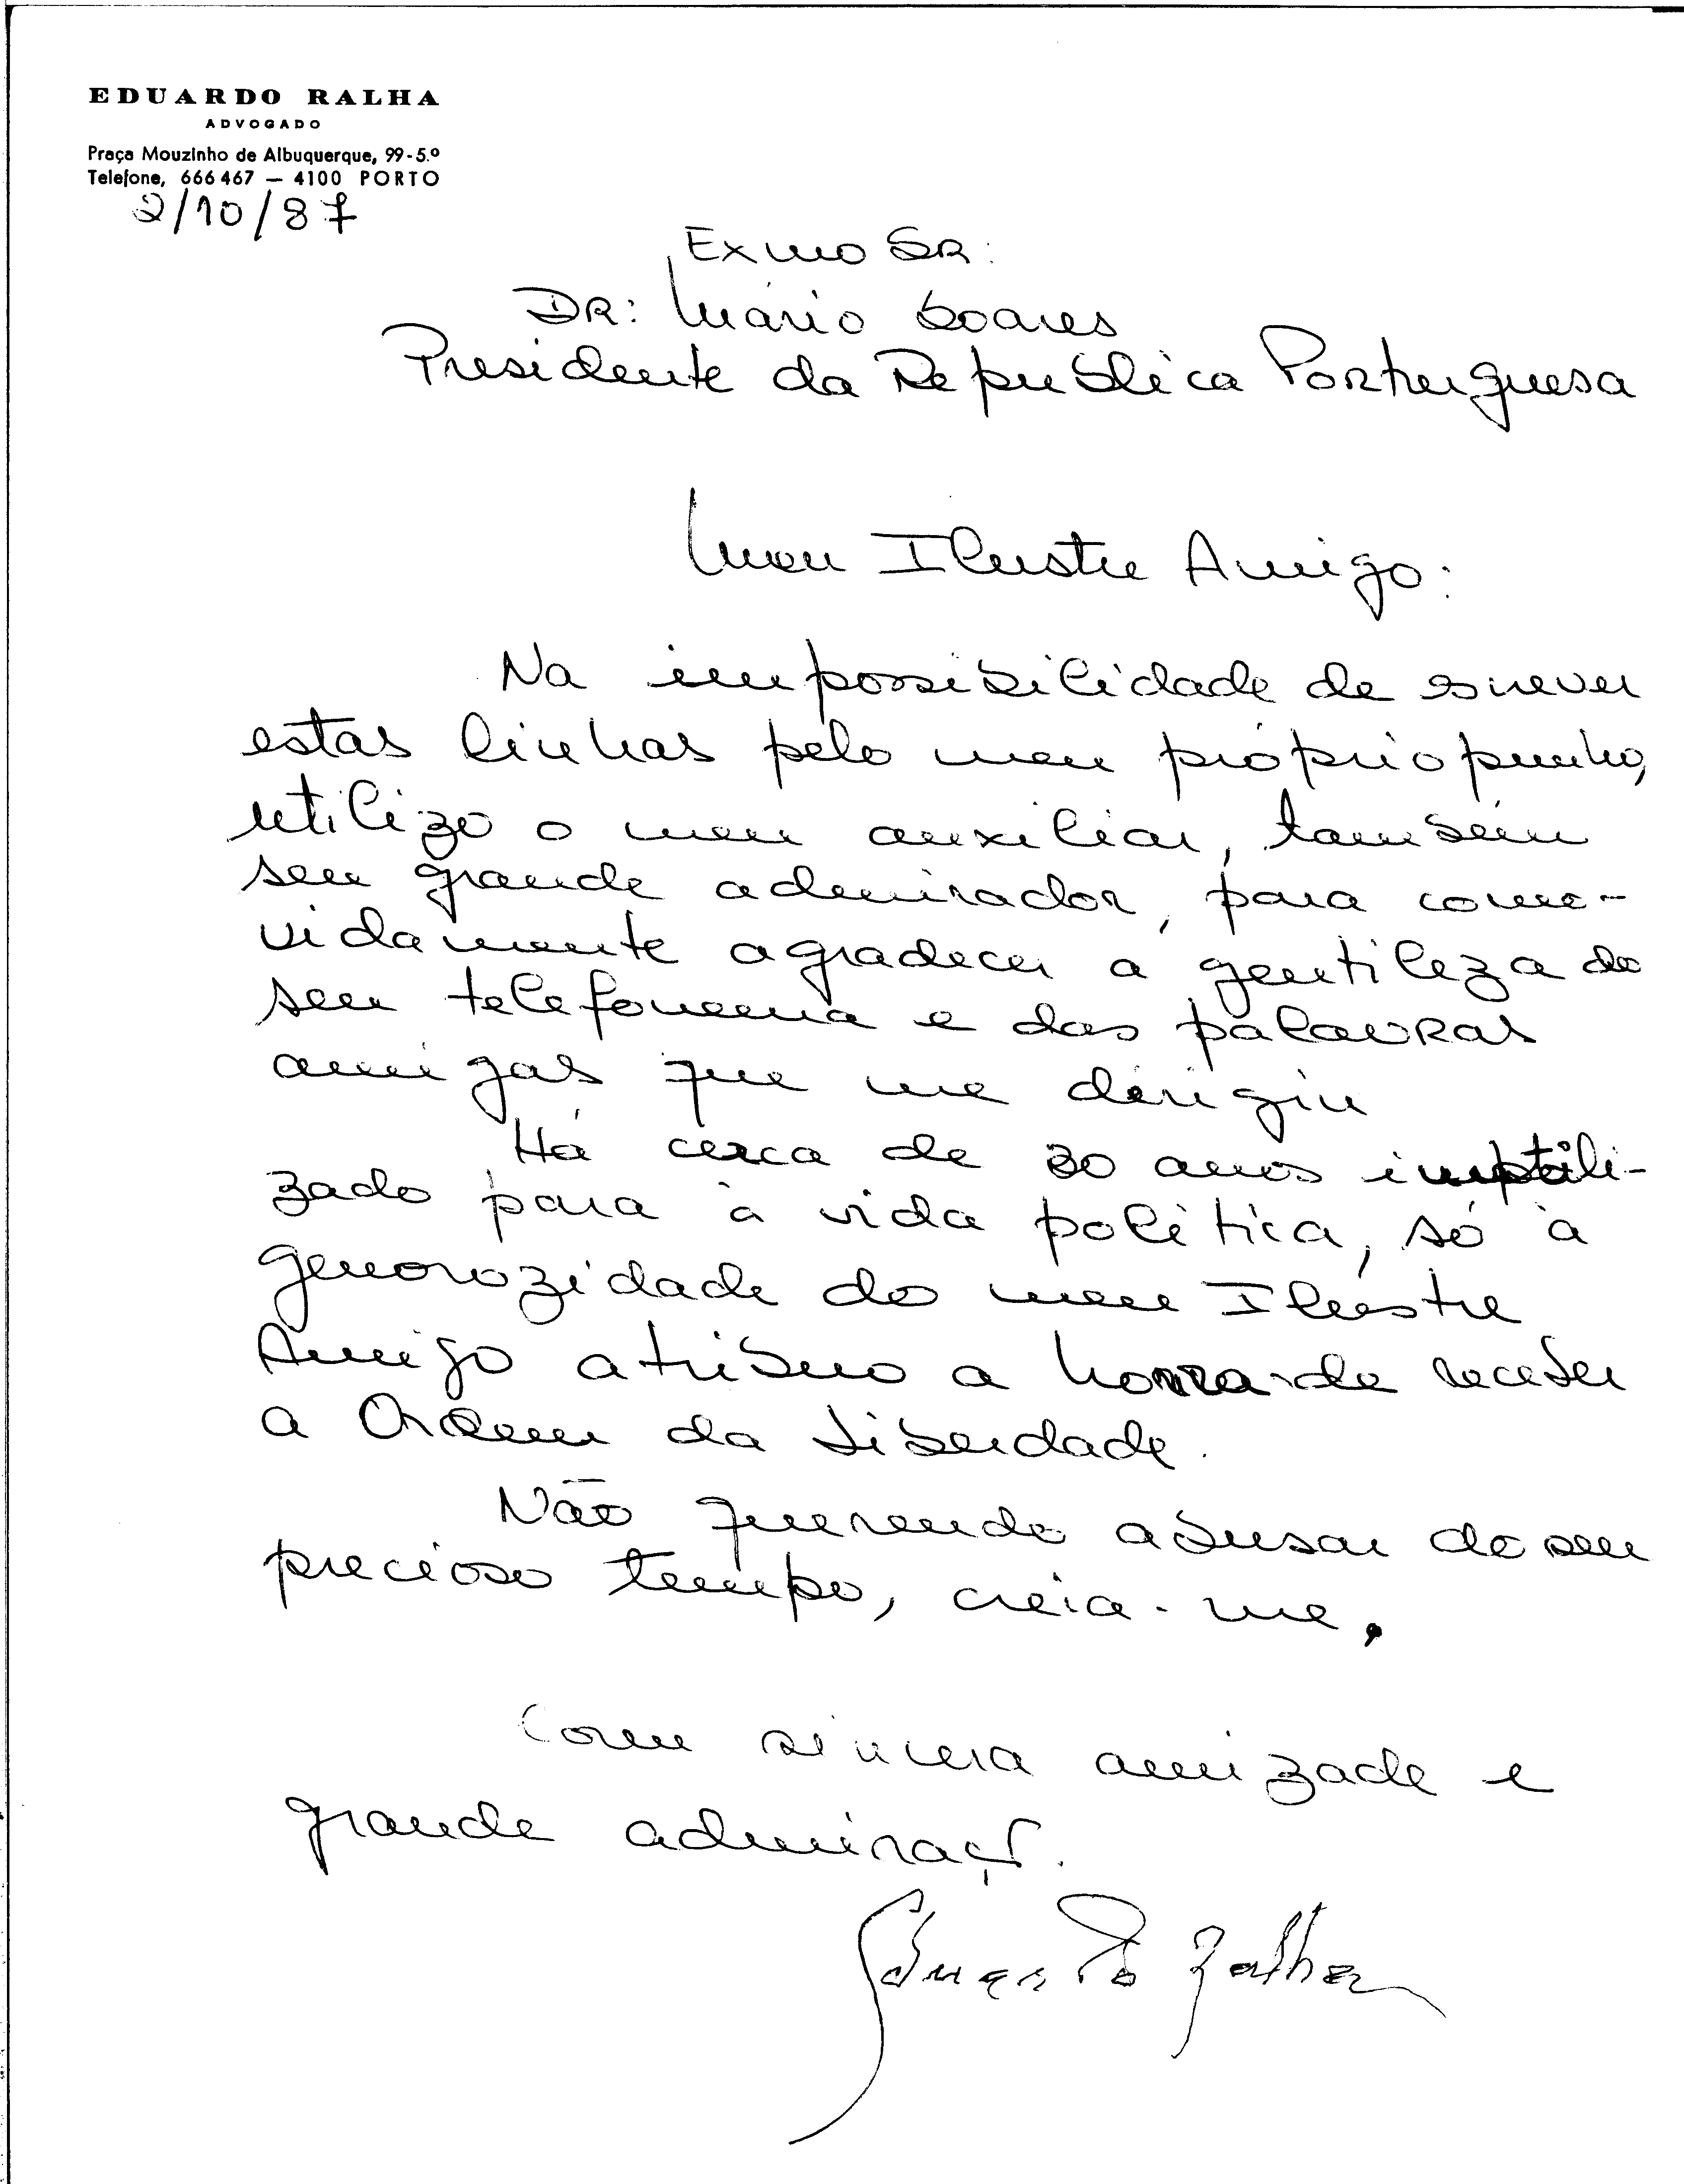 EDUARDO RALHA
ADVOGADO
Praça Mouzinho de Albuquerque, 99-5.º
Telefone, 666 467 — 4100 PORTO
2/10/87
Exmo SR:
DR: Mário Soares
Presidente da República Portuguesa
Meu Ilustre Amigo:
Na impossibilidade de escrever
estas linhas pelo meu próprio punho,
utilizo o meu auxiliar, também
seu grande admirador, para como-
vidamente agradecer a gentileza do
seu telefonema e das palavras
amigas que me dirigiu
Há cerca de 30 anos inutili-
zado para a vida política, só à
generozidade do meu Ilustre
Amigo atribuo a honra de receber
a Ordem da Liberdade.
Não querendo abusar do seu
precioso tempo, creia-me,
Com sincera amizade e
grande admiração.
Eduardo Ralha